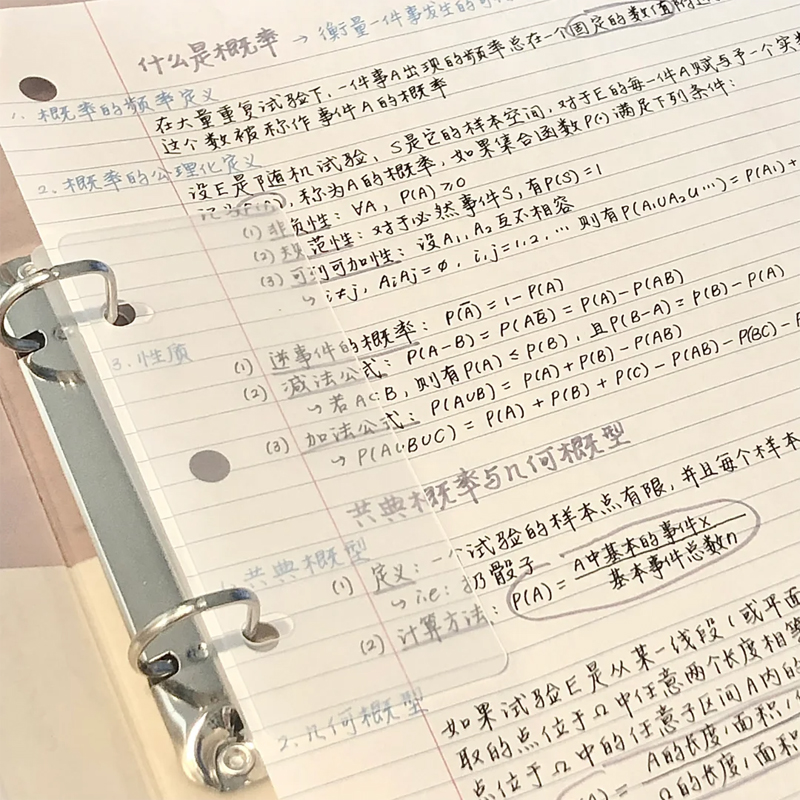 什么是概率 → 衡量一件事发生的可
1. 概率的频率定义
在大量重复试验下,一件事A出现的频率总在一个固定的数值附近
这个数被称作事件A的概率
2. 概率的公理化定义
设E是随机试验,S是它的样本空间,对于E的每一件A赋与予一个实数
记为P(A),称为A的概率,如果集合函数P(·)满足下列条件:
(1) 非负性: ∀A, P(A)≥0
(2) 规范性: 对于必然事件S,有P(S)=1
(3) 可列可加性: 设A₁,A₂互不相容
↳ i≠j, AiAj=∅, i,j=1,2,… 则有P(A₁∪A₂∪…)=P(A₁)+
3. 性质
(1) 逆事件的概率: P(A̅)=1-P(A)
(2) 减法公式: P(A-B)=P(AB̅)=P(A)-P(AB)
↳ 若A⊂B, 则有P(A)≤P(B), 且P(B-A)=P(B)-P(A)
(3) 加法公式: P(A∪B)=P(A)+P(B)-P(AB)
↳ P(A∪B∪C)=P(A)+P(B)+P(C)-P(AB)-P(BC)-
共典概率与几何概型
1. 共典概型
(1) 定义: 一个试验的样本点有限,并且每个样本
↳ i.e: 扔骰子
(2) 计算方法: P(A)= A中基本的事件x / 基本事件总数n
2. 几何概型
如果试验E是从某一线段(或平面
取的点位于Ω中任意两个长度相等
点位于Ω中的任意子区间A内的
(A)= A的长度/面积/ 
Ω的长度/面积